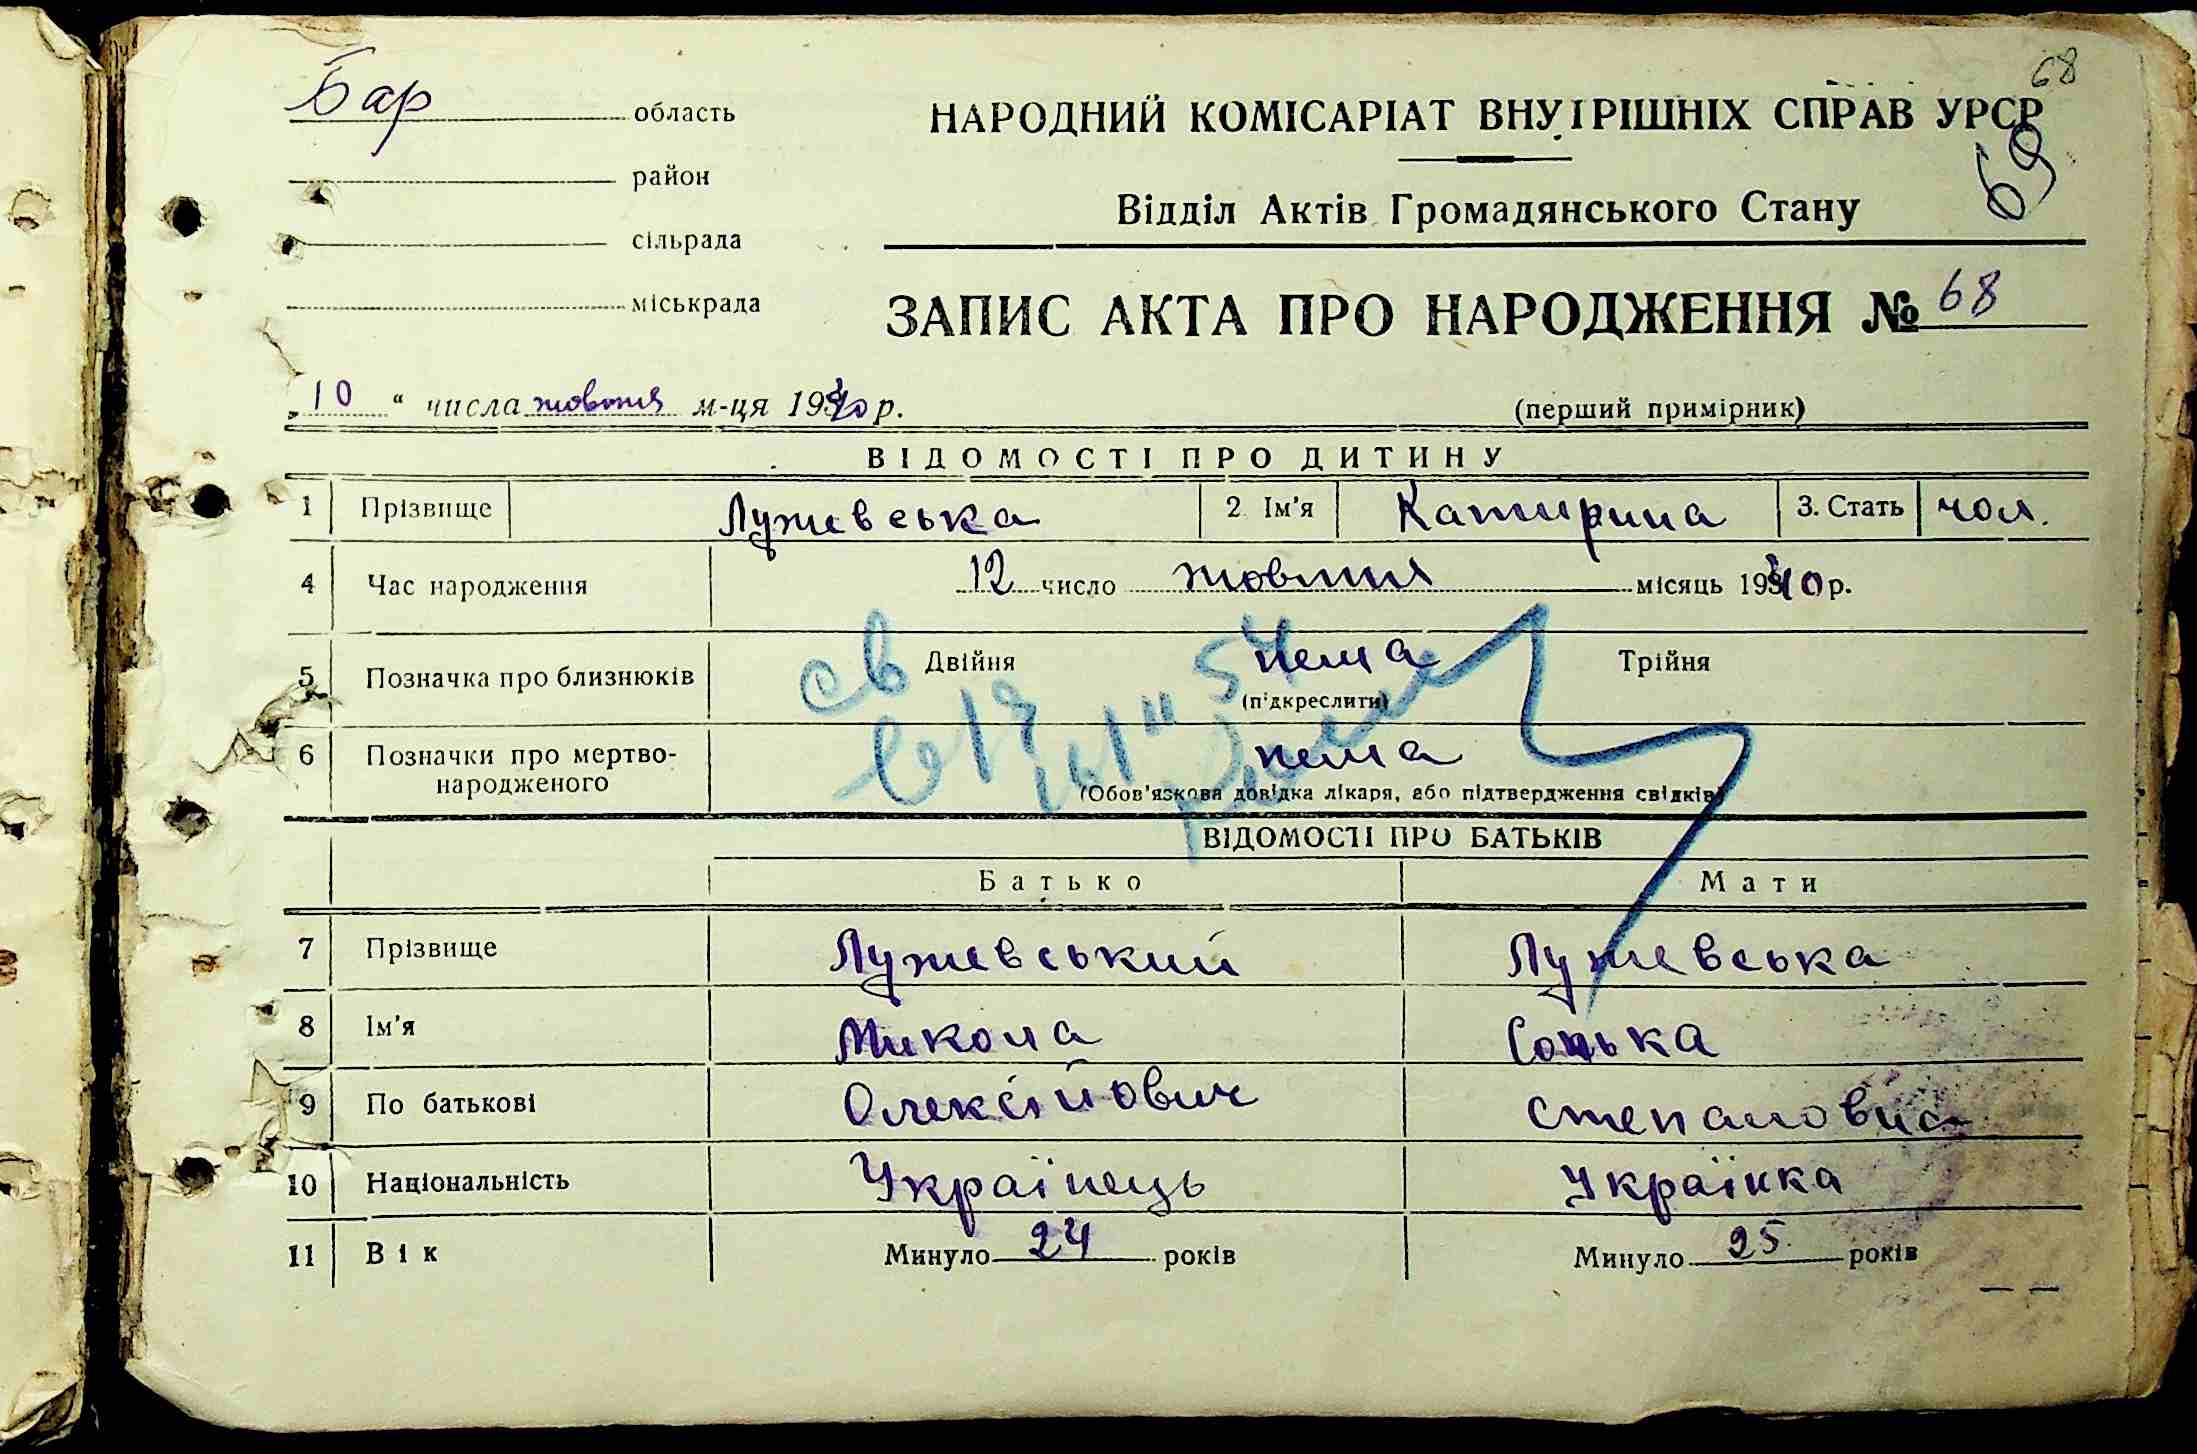 68
Бар область
НАРОДНИЙ КОМІСАРІАТ ВНУТРІШНІХ СПРАВ УРСР
район
69
Відділ Актів Громадянського Стану
сільрада
міськрада
ЗАПИС АКТА ПРО НАРОДЖЕННЯ № 68
„10“ числа жовтня м-ця 1940 р.
(перший примірник)
ВІДОМОСТІ ПРО ДИТИНУ
1 Прізвище Лужевська 2 Ім'я Катирина 3. Стать чол.
4 Час народження 12 число жовтня місяць 1940 р.
5 Позначка про близнюків Двійня нема Трійня
(підкреслити)
6 Позначки про мертво-
народженого нема
(Обов'язкова довідка лікаря, або підтвердження свідків)
ВІДОМОСТІ ПРО БАТЬКІВ
Батько Мати
7 Прізвище Лужевський Лужевська
8 Ім'я Микола Сонька
9 По батькові Олексійович Степановна
10 Національність Українець Українка
11 Вік Минуло 24 років Минуло 25 років